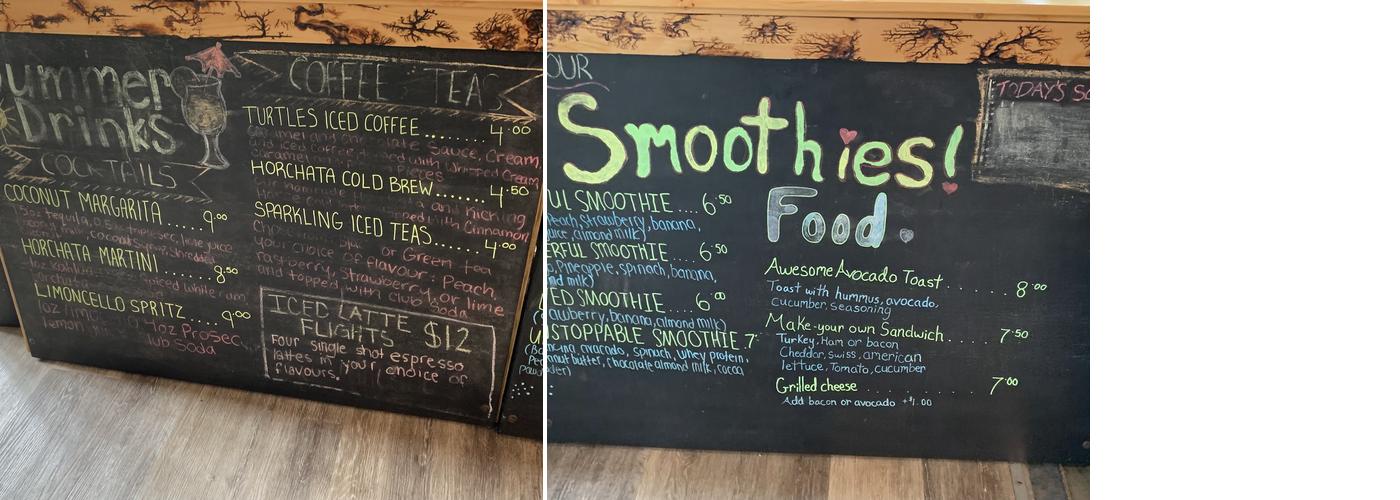 ummer
Drinks
COCKTAILS
COCONUT MARGARITA ..... 9.00
1.5oz tequila, triplesec, lime juice
coconut syrup, shredded
HORCHATA MARTINI ...... 8.50
1oz Kahlua spiced white rum,
LIMONCELLO SPRITZ ..... 9.00
1oz limo 4oz Prosec,
lemon lub Soda
COFFEE TEAS
TURTLES ICED COFFEE ....... 4.00
Caramel and chocolate Sauce, Cream,
and iced Coffee mixed with Whipped Cream,
Caramel Pieces
HORCHATA COLD BREW ....... 4.50
homemade and nicking
topped with Cinnamon
SPARKLING ICED TEAS ...... 4.00
Choose or Green tea
your choice of flavour: Peach,
raspberry, strawberry, or lime
and topped with club Soda
ICED LATTE
FLIGHTS $12
Four single shot espresso
lattes in your choice of
flavours.
OUR
Smoothies!
UL SMOOTHIE .... 6.50
Peach, strawberry, banana,
juice, almond milk)
ERFUL SMOOTHIE .... 6.50
Pineapple, spinach, banana,
nd milk)
ED SMOOTHIE .... 6.00
awberry, banana, almond milk)
NSTOPPABLE SMOOTHIE 7.
(Banana, avacado, spinach, Whey protein,
Peanut butter, chocolate almond milk, cacao
Powder)
TODAY'S SO
Food.
Awesome Avocado Toast . . . . . . 8.00
Toast with hummus, avocado,
cucumber, seasoning
Make-your own Sandwich . . . . . 7.50
Turkey, Ham or bacon
Cheddar, swiss, american
lettuce, Tomato, cucumber
Grilled cheese . . . . . . . 7.00
Add bacon or avocado +$1.00